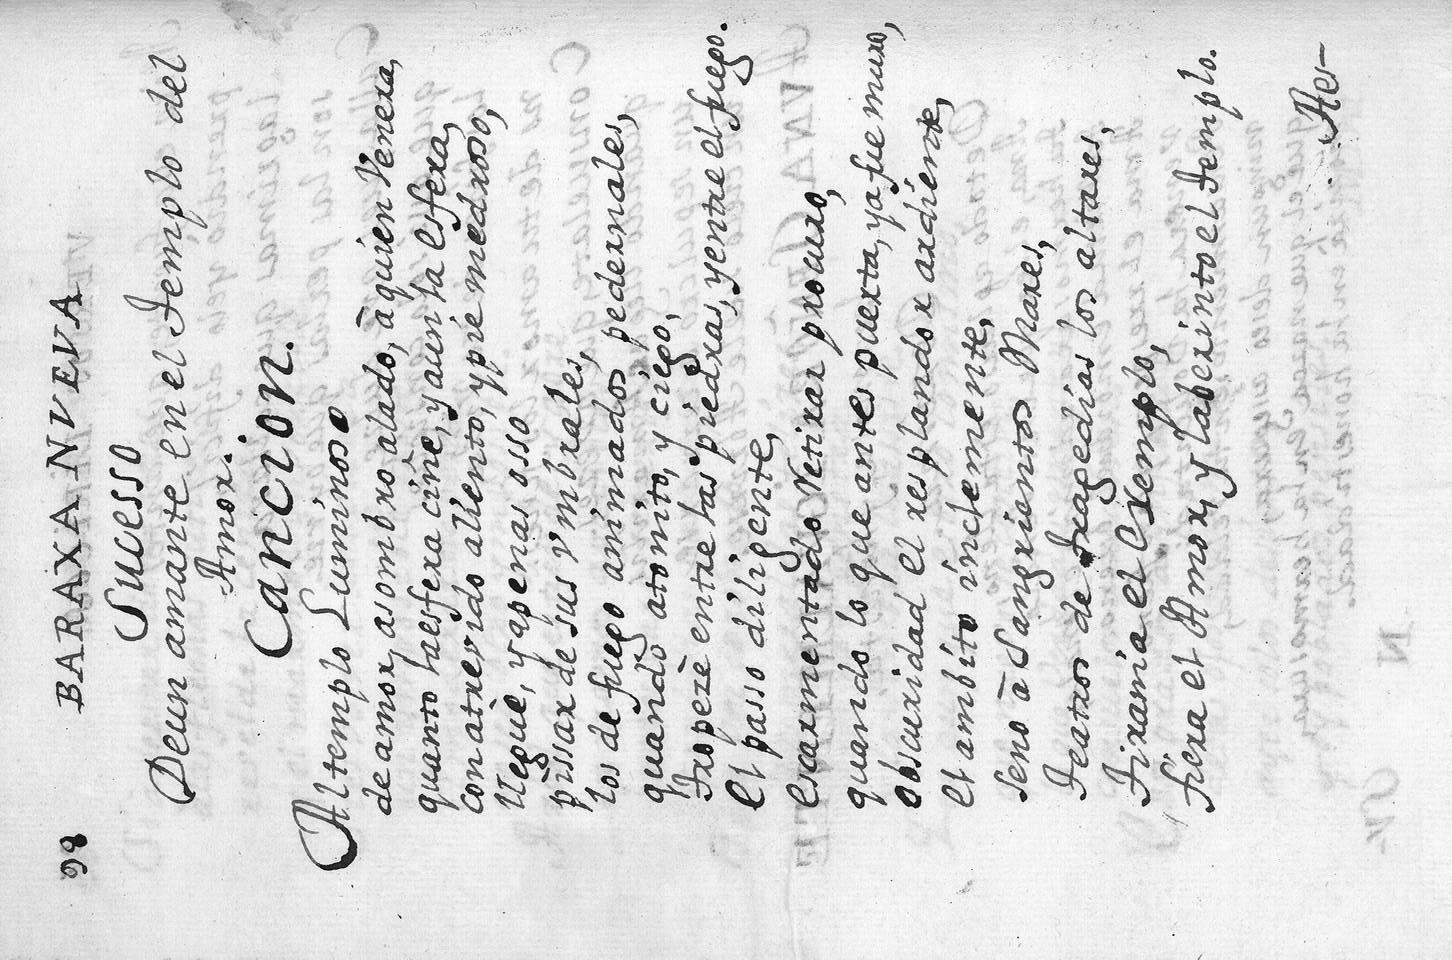 98 BARAXA NVEVA
Sucesso
Deun amante en el Templo del
Amor.
Cancion.
Al templo Luminoso
de amor, asombro alado, à quien Venera,
quanto la esfera ciñe, y aun la esfera,
con atrevido aliento, y pie medroso,
llegue, y apenas osso
pissar de sus vmbrales,
los de fuego animados, pedernales,
quando atonito, y ciego,
tropezè entre las piedras, y entre el fuego.
El passo diligente,
escarmentado Retirar procuro,
quando lo que antes puerta, ya fue muro,
obscuridad el resplandor ardiente,
el ambito inclemente,
seno à Sangrientos Mares,
Teatros de tragedias los altares,
Tirania el Exemplo,
fiera el Amor, y laberinto el Templo.